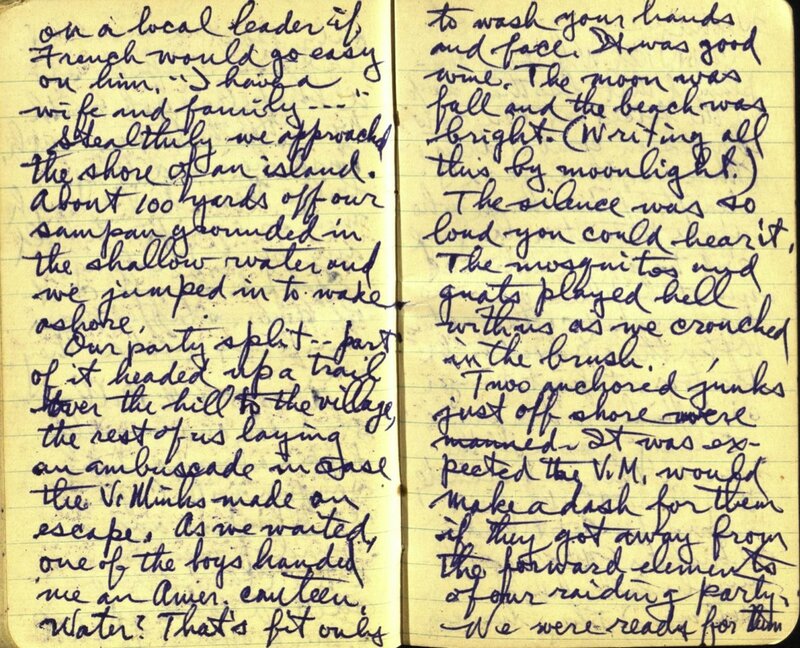 on a local leader if
French would go easy
on him. "I have a
wife and family ---"
Stealthily we approached
the shore of an island.
About 100 yards off our
sampan grounded in
the shallow water and
we jumped in to wake
ashore.
Our party split -- part
of it headed up a trail
over the hill to the village,
the rest of us laying
an ambuscade in case
the V. Minhs made an
escape. As we waited,
one of the boys handed
me an Amer. canteen.
Water? That's fit only
to wash your hands
and face. It was good
wine. The moon was
full and the beach was
bright. (Writing all
this by moonlight.)
The silence was so
loud you could hear it.
The mosquitos and
gnats played hell
with us as we crouched
in the brush.
Two anchored junks
just off shore were
manned. It was ex-
pected the V.M. would
make a dash for them
if they got away from
the forward elements
of our raiding party.
We were ready for them